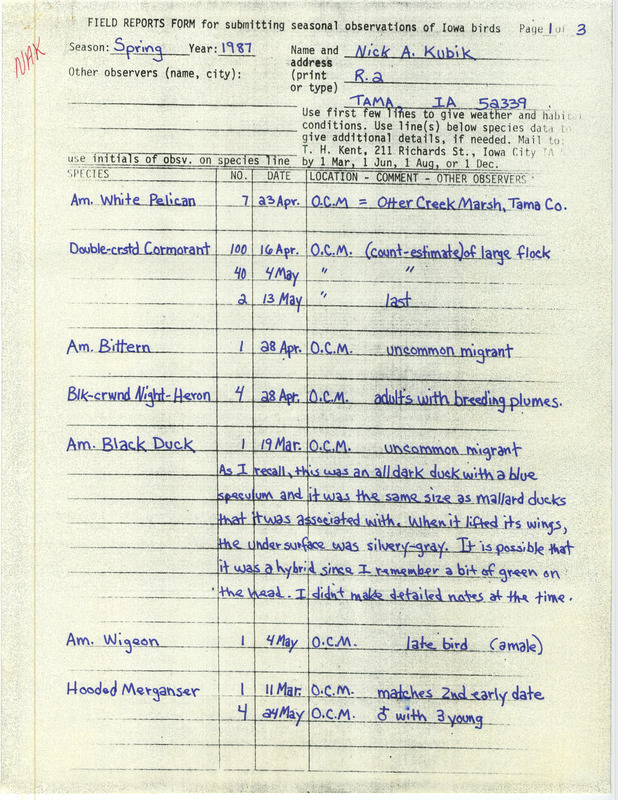 FIELD REPORTS FORM for submitting seasonal observations of Iowa birds Page 1 of 3
NAK
Season: Spring Year: 1987 Name and Nick A. Kubik
address
Other observers (name, city): (print R. 2
or type)
TAMA, IA 52339
Use first few lines to give weather and habitat
conditions. Use line(s) below species data to
give additional details, if needed. Mail to:
T. H. Kent, 211 Richards St., Iowa City IA
use initials of obsv. on species line by 1 Mar, 1 Jun, 1 Aug, or 1 Dec.
SPECIES NO. DATE LOCATION - COMMENT - OTHER OBSERVERS
Am. White Pelican 7 23 Apr. O.C.M = Otter Creek Marsh, Tama Co.
Double-crstd Cormorant 100 16 Apr. O.C.M. (count-estimate) of large flock
40 4 May " "
2 13 May " last
Am. Bittern 1 28 Apr. O.C.M. uncommon migrant
Blk-crwnd Night-Heron 4 28 Apr. O.C.M. adults with breeding plumes.
Am. Black Duck 1 19 Mar. O.C.M. uncommon migrant
As I recall, this was an all dark duck with a blue
speculum and it was the same size as mallard ducks
that it was associated with. When it lifted its wings,
the under surface was silvery-gray. It is possible that
it was a hybrid since I remember a bit of green on
the head. I didn't make detailed notes at the time.
Am. Wigeon 1 4 May O.C.M. late bird (a male)
Hooded Merganser 1 11 Mar. O.C.M. matches 2nd early date
4 24 May O.C.M. ♂ with 3 young